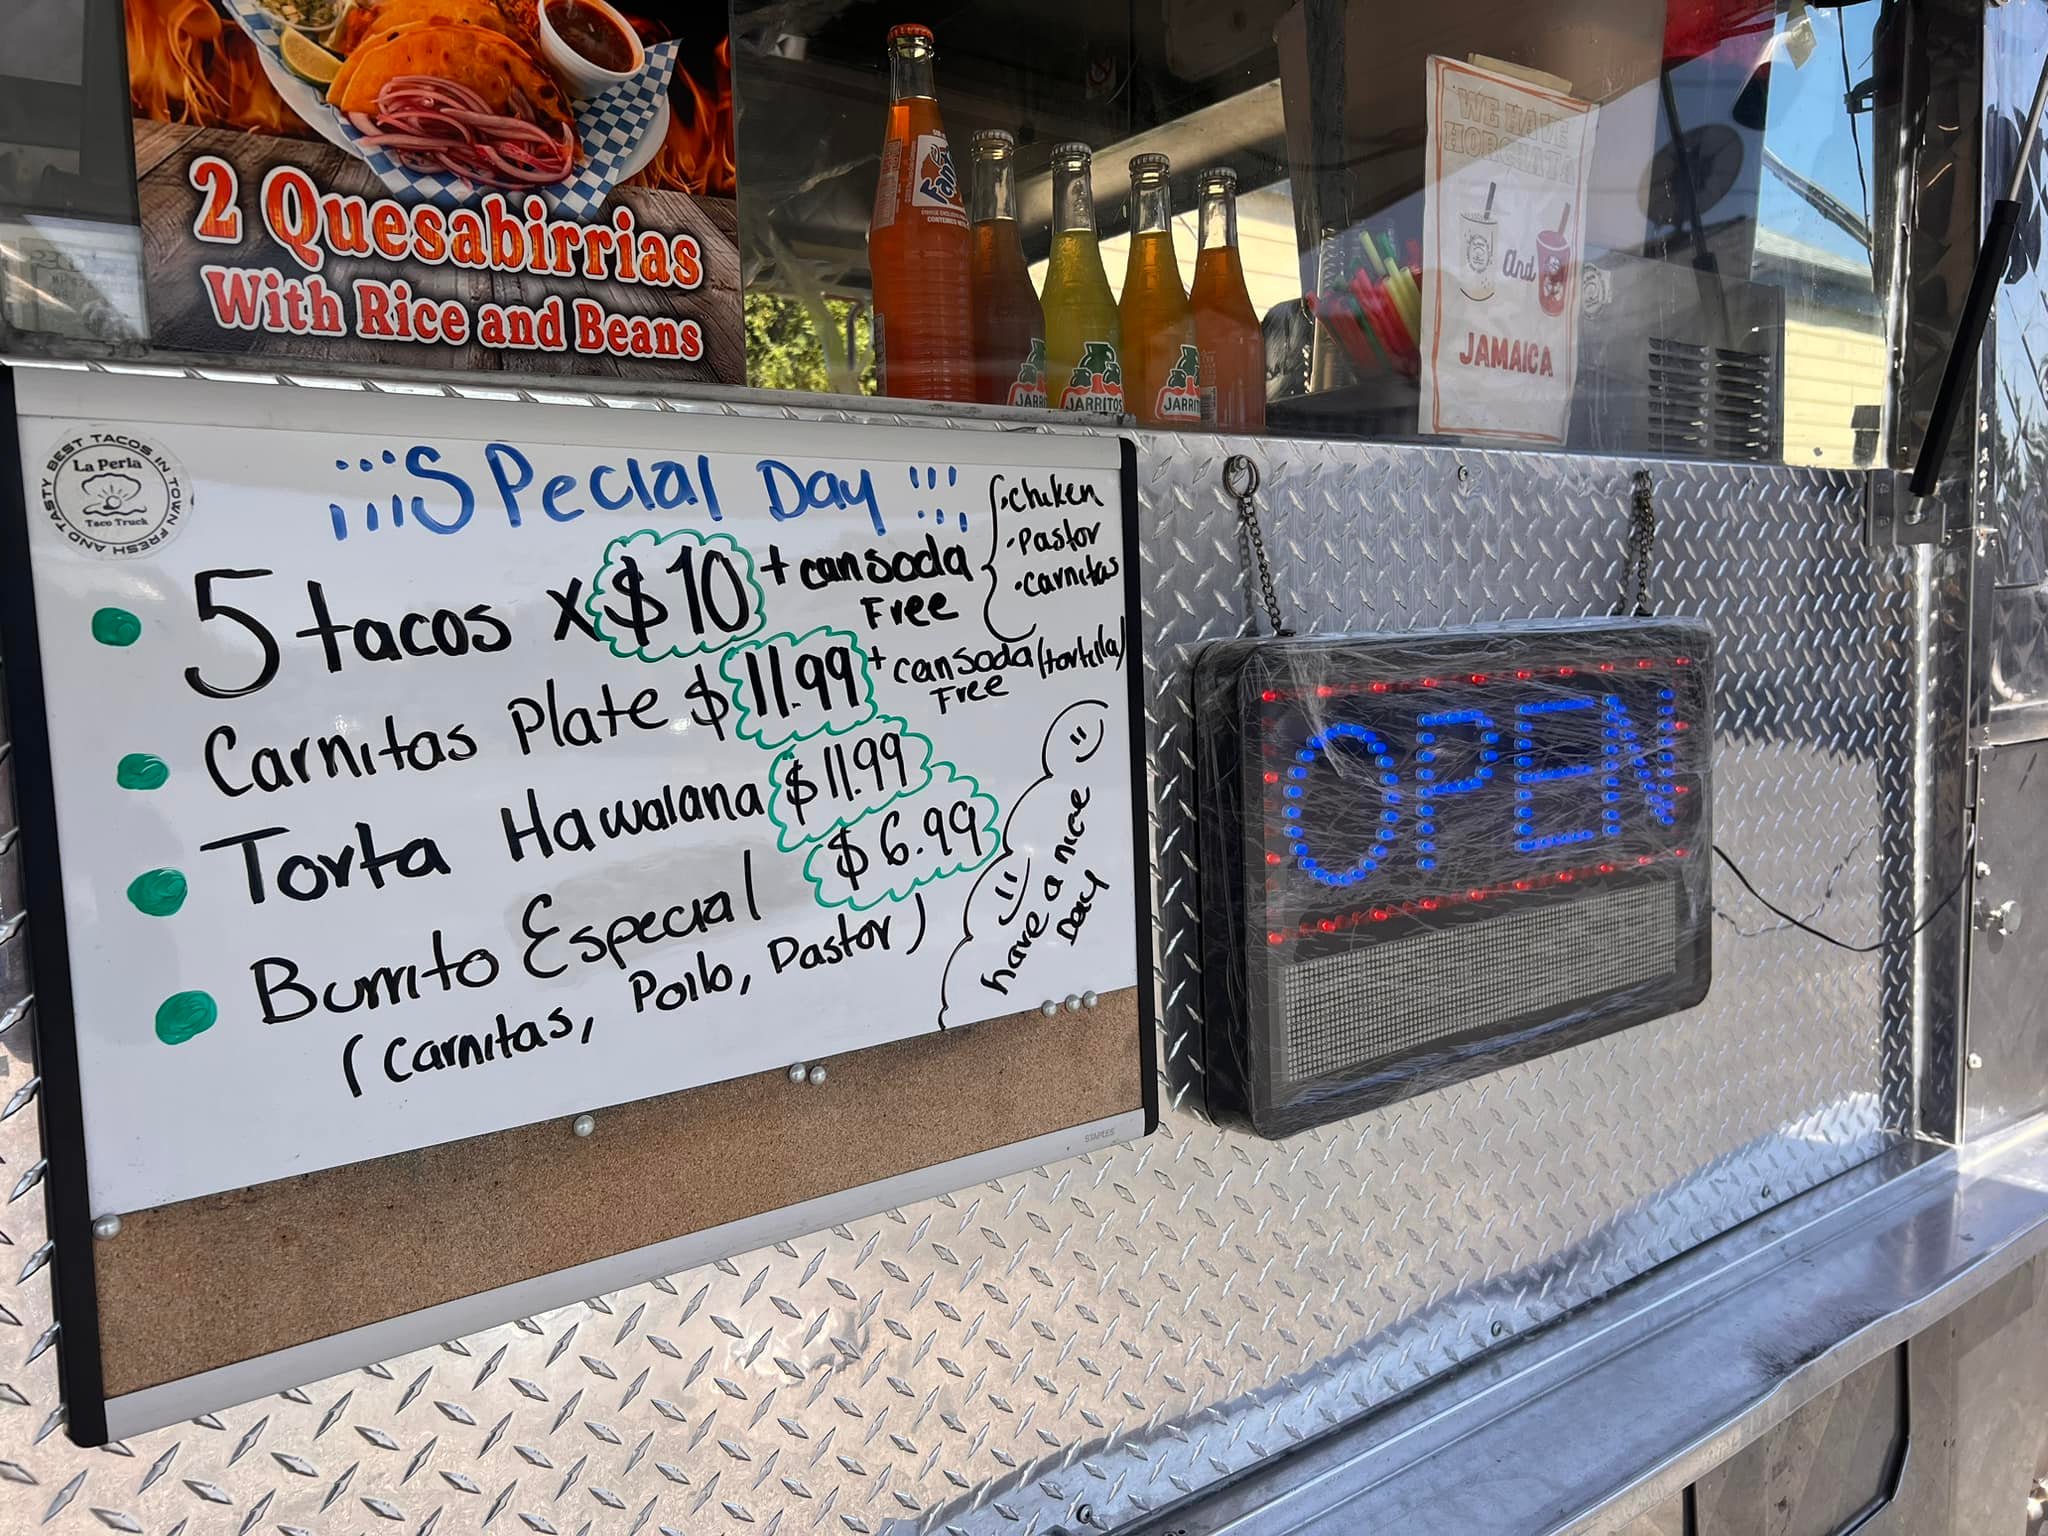 2 Quesabirrias
With Rice and Beans
WE HAVE
HORCHATA
And
JAMAICA
JARRITOS
JARRITOS
JARRITOS
Fanta
BEST TACOS IN TOWN FRESH AND TASTY
La Perla
Taco Truck
¡¡¡SPecial Day !!!
• 5 tacos x $10 + can soda
Free
• chiken
• Pastor
• carnitas
• Carnitas Plate $11.99 + can soda (tortilla)
Free
• Torta Hawaiana $11.99
• Burrito Especial $6.99
(Carnitas, Pollo, Pastor)
have a nice
Day
STAPLES
OPEN